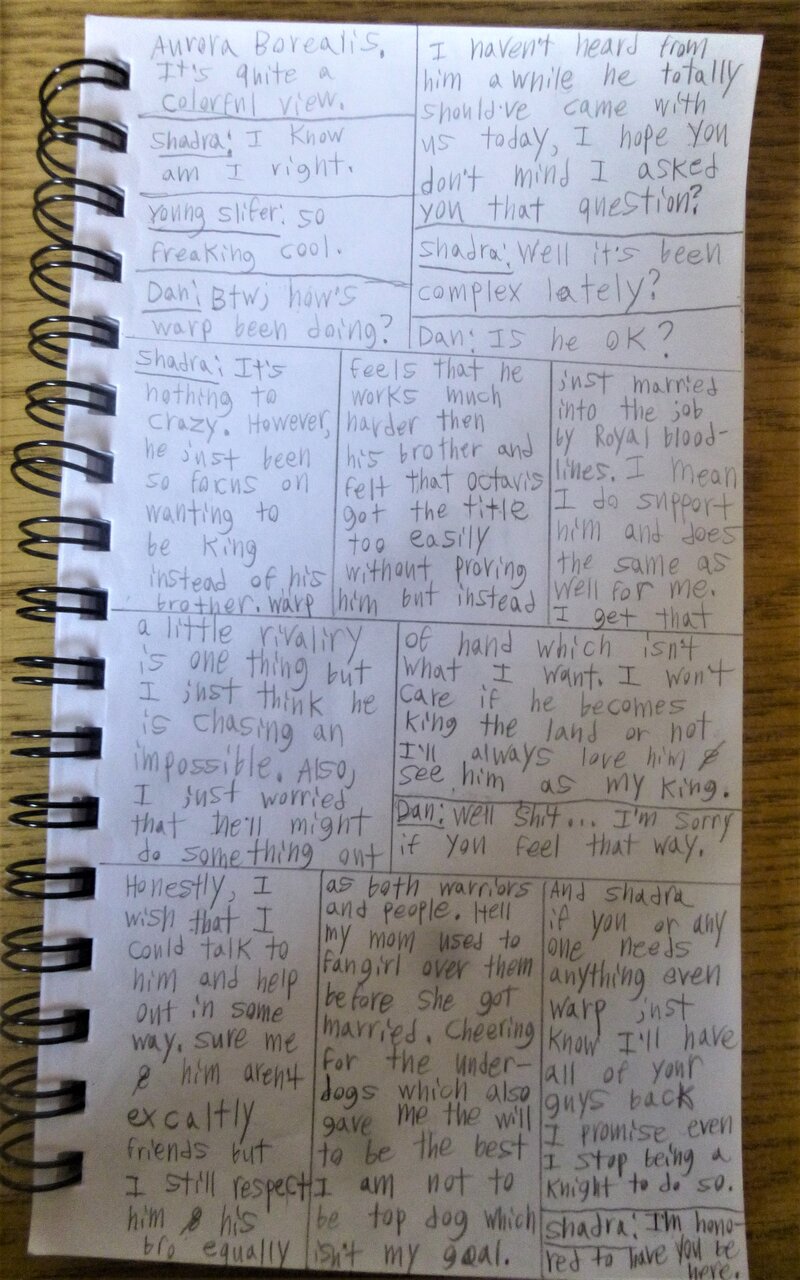 Aurora Borealis.
It's quite a
colorful view.
Shadra: I know
am I right.
Young Slifer: so
freaking cool.
Dan: Btw, how's
warp been doing?
I haven't heard from
him a while he totally
should've came with
us today, I hope you
don't mind I asked
you that question?
Shadra: Well it's been
complex lately?
Dan: Is he OK?
Shadra: It's
nothing to
crazy. However,
he just been
so focus on
wanting to
be King
instead of his
brother. warp
feels that he
works much
harder then
his brother and
felt that octavis
got the title
too easily
without proving
him but instead
just married
into the job
by Royal blood-
lines. I mean
I do support
him and does
the same as
well for me.
I get that
a little rivaliry
is one thing but
I just think he
is chasing an
impossible. Also,
I just worried
that he'll might
do something out
of hand which isn't
what I want. I won't
care if he becomes
King the land or not
I'll always love him &
see him as my King.
Dan: Well shit... I'm sorry
if you feel that way.
Honestly, I
wish that I
could talk to
him and help
out in some
way. sure me
& him aren't
excaltly
friends but
I still respect
him & his
bro equally
as both warriors
and people. Hell
my mom used to
fangirl over them
before she got
married. Cheering
for the under-
dogs which also
gave me the will
to be the best
I am not to
be top dog which
isn't my goal.
And shadra
if you or any
one needs
anything even
warp just
know I'll have
all of your
guys back
I promise even
I stop being a
Knight to do so.
Shadra: I'm hono-
red to have you be
here.